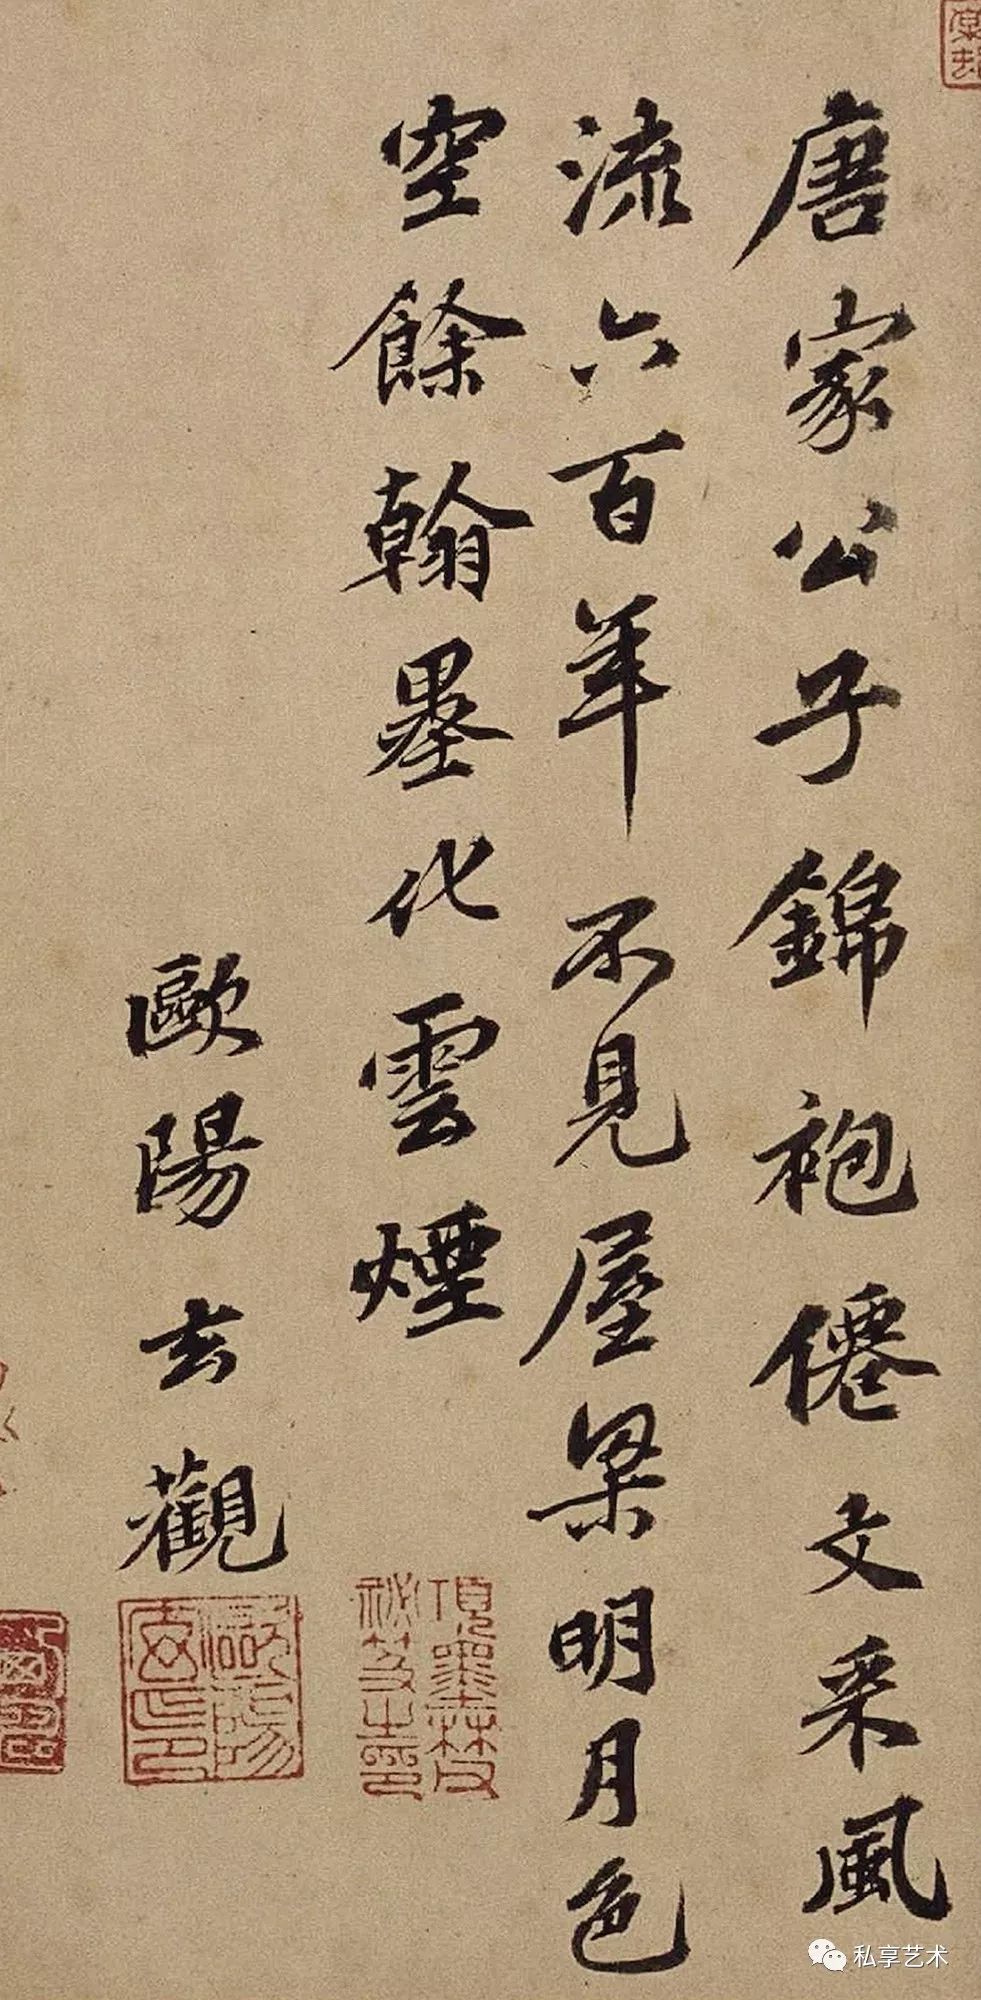 唐家公子錦袍僊文采風
流六百年不見屋梁明月色
空餘翰墨化雲煙
歐陽玄觀
項墨林父
祕笈之印
歐陽
玄印
私享艺术